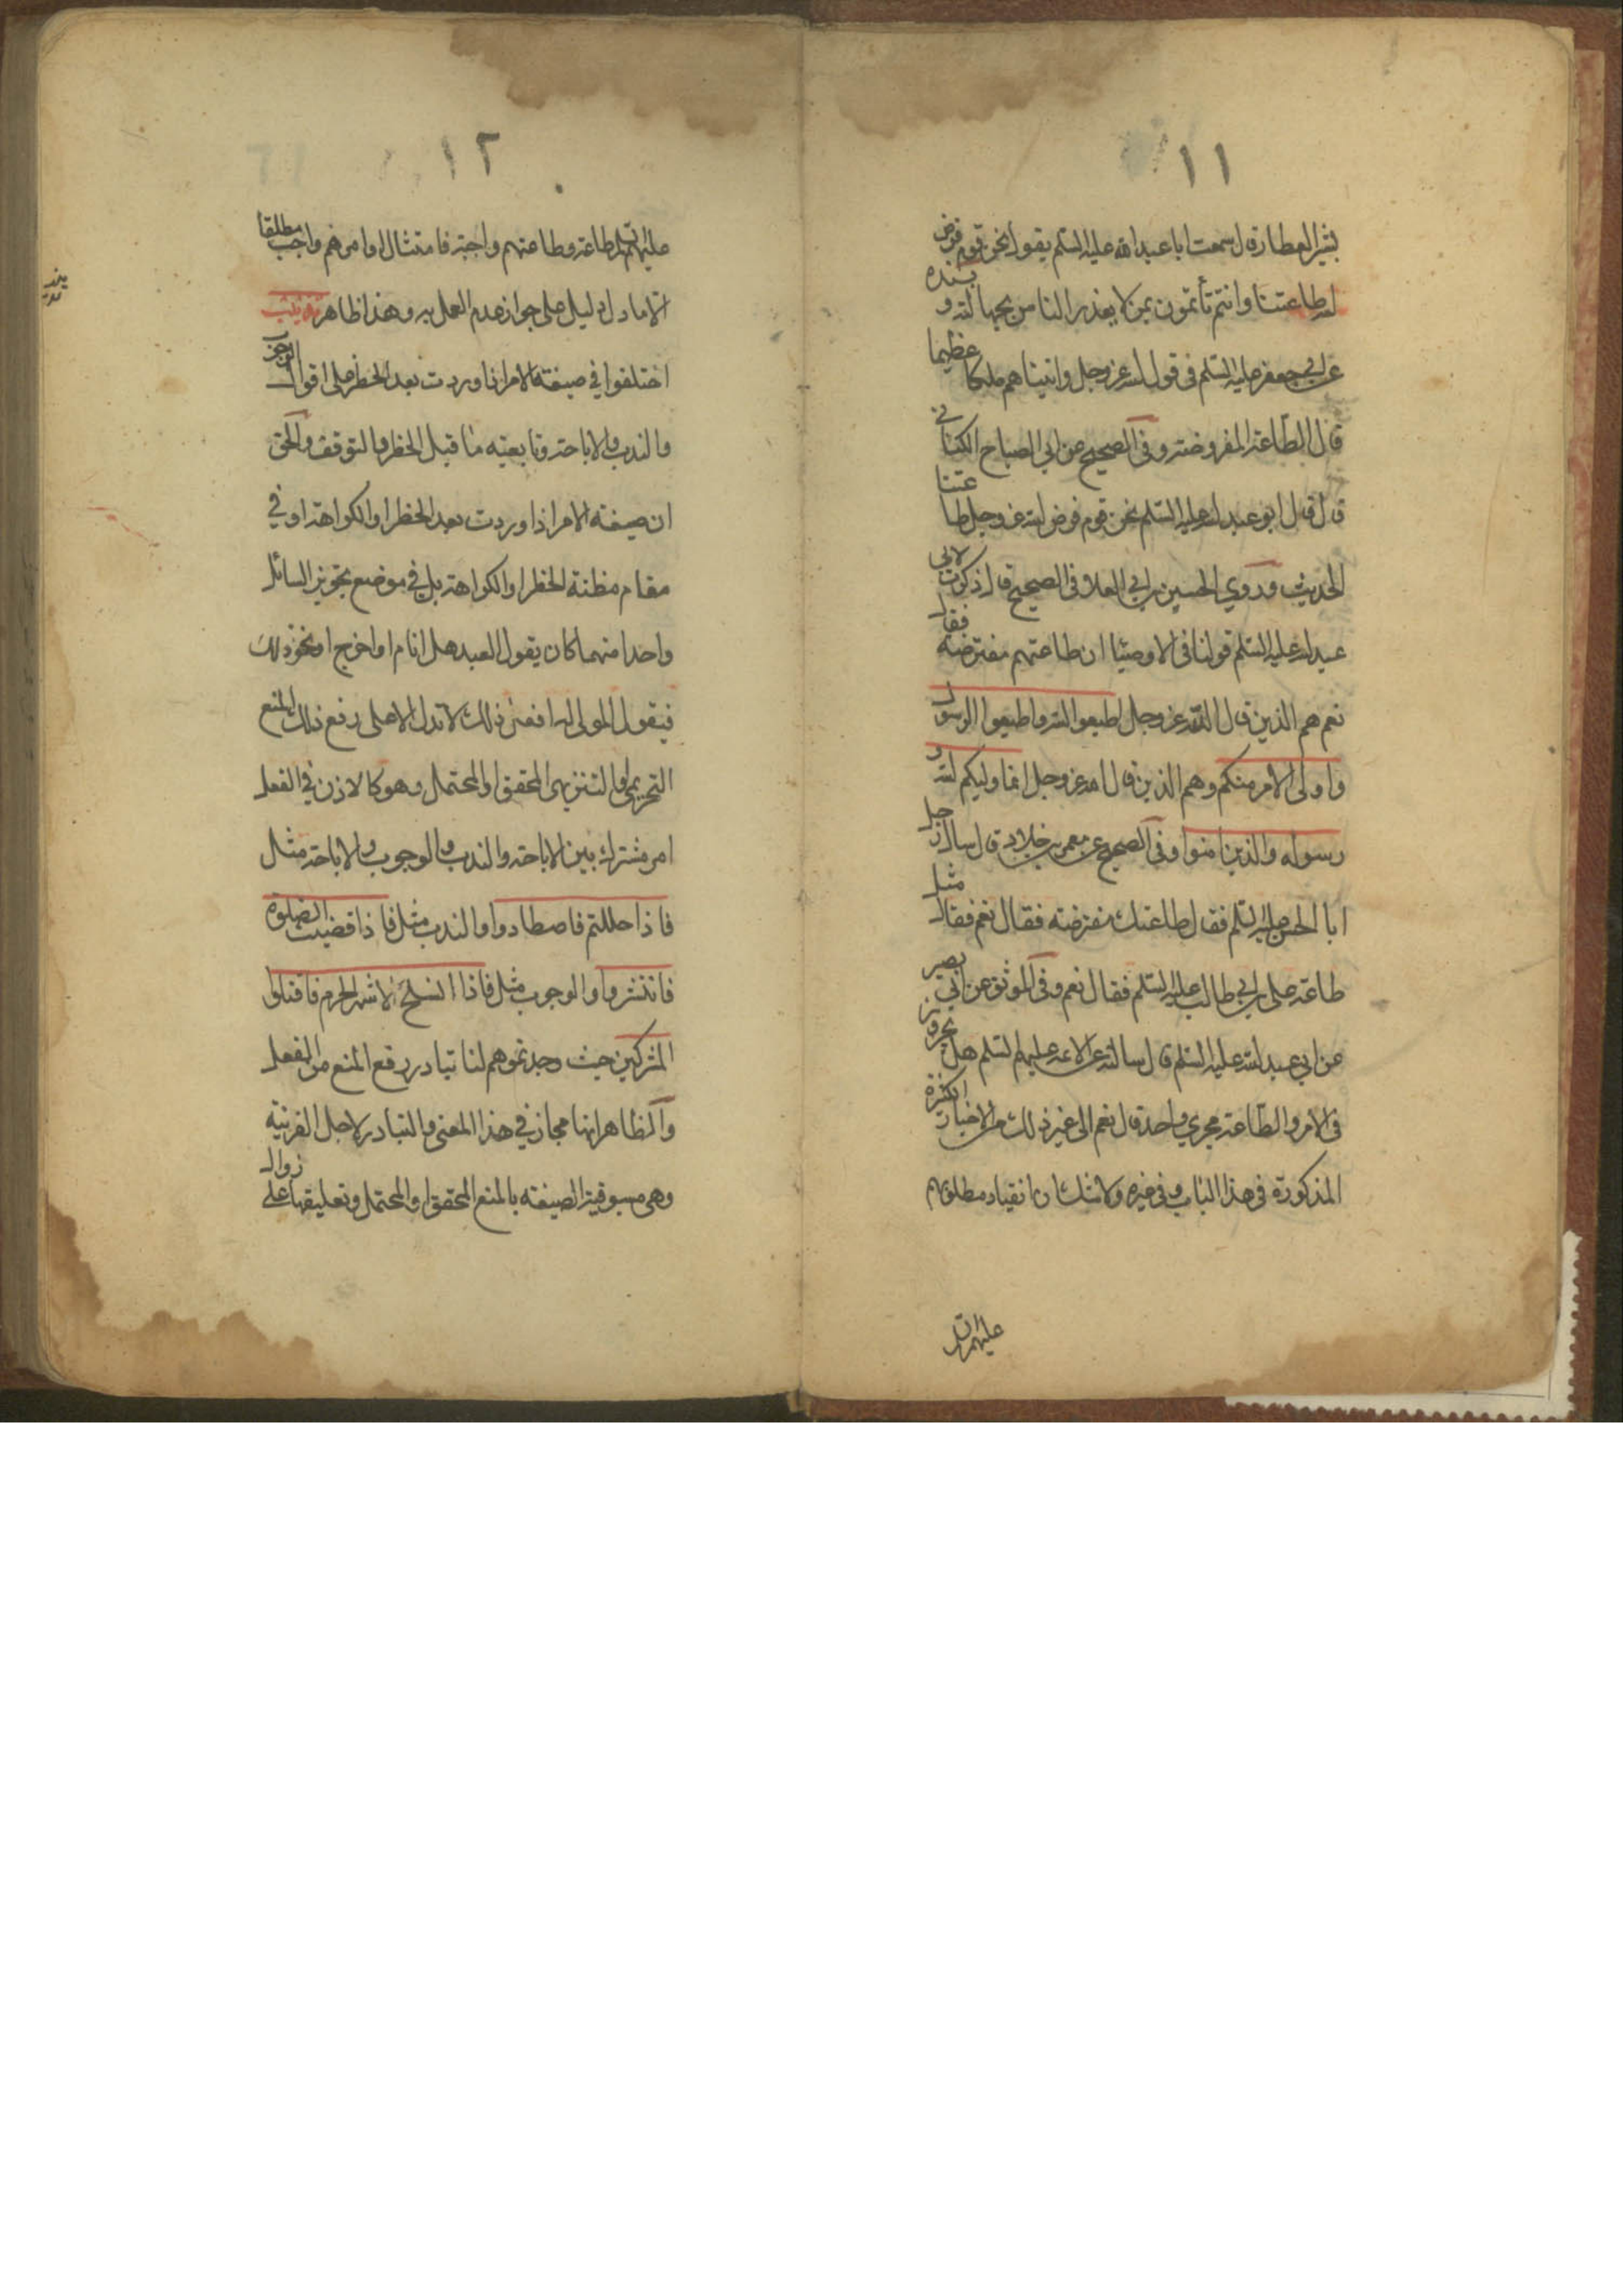 ١١
بشير العطار قال سمعت ابا عبد الله عليه السلم يقول نحن قوم فرض
الله طاعتنا وانتم تأتمون بمن لا يعذر الناس بجهالته و بسنده
عن ابي جعفر عليه السلم في قول الله عز وجل واتيناهم ملكا عظيما
قال الطاعة المفروضة وفي الصحيح عن ابي الصباح الكناني
قال قال ابو عبد الله عليه السلم نحن قوم فرض الله عز وجل طاعتنا
الحديث وروي الحسين بن ابي العلا في الصحيح قال ذكرت لابي
عبد الله عليه السلم قولنا في الاوصيا ان طاعتهم مفترضة فقال
نعم هم الذين قال الله عز وجل اطيعوا الله واطيعوا الرسول
واولى الامر منكم وهم الذين قال الله عز وجل انما وليكم الله و
رسوله والذين امنوا وفي الصحيح عن معمر بن خلاد قال سال رجل
ابا الحسن عليه السلم فقال طاعتك مفترضة فقال نعم فقال مثل
طاعة علي بن ابي طالب عليه السلم فقال نعم وفي الموثق عن ابي بصير
عن ابي عبد الله عليه السلم قال سالته عن الائمة عليهم السلم هل يجرون
في الامر والطاعة مجري واحد قال نعم الى غير ذلك من الاخبار الكثيرة
المذكورة في هذا الباب وفي غيره ولا شك ان انقياد مطلق
عليهم
١٢
عليهم السلم طاعة وطاعتهم واجبة فامتثال اوامرهم واجب مطلقا
الا ما دل دليل على جواز عدم العمل به وهذا ظاهر
اختلفوا في صيغة الامر اذا وردت بعد الحظر على اقوال الوجوب
والندب والاباحة وتابعيته ما قبل الحظر والتوقف والحق
ان صيغة الامر اذا وردت بعد الحظر او الكراهة او في
مقام مظنة الحظر او الكراهة بل في موضع تجويز السائل
واحدا منهما كان يقول العبد هل انام او اخرج او نحو ذلك
فيقول المولى له افعل ذلك لا تدل الا على رفع ذلك المنع
التحريمي او التنزيهي المحقق او المحتمل وهو كالاذن في الفعل
امر مشترك بين الاباحة والندب والوجوب والاباحة مثل
فاذا حللتم فاصطادوا والندب مثل فاذا قضيت الصلوة
فانتشروا والوجوب مثل فاذا انسلخ الاشهر الحرم فاقتلوا
المشركين حيث وجدتموهم لنا تبادر رفع المنع من الفعل
والظاهر انها مجاز في هذا المعنى والتبادر لاجل القرينة
وهي مسبوقية الصيغة بالمنع المحقق او المحتمل وتعليقها على زوال